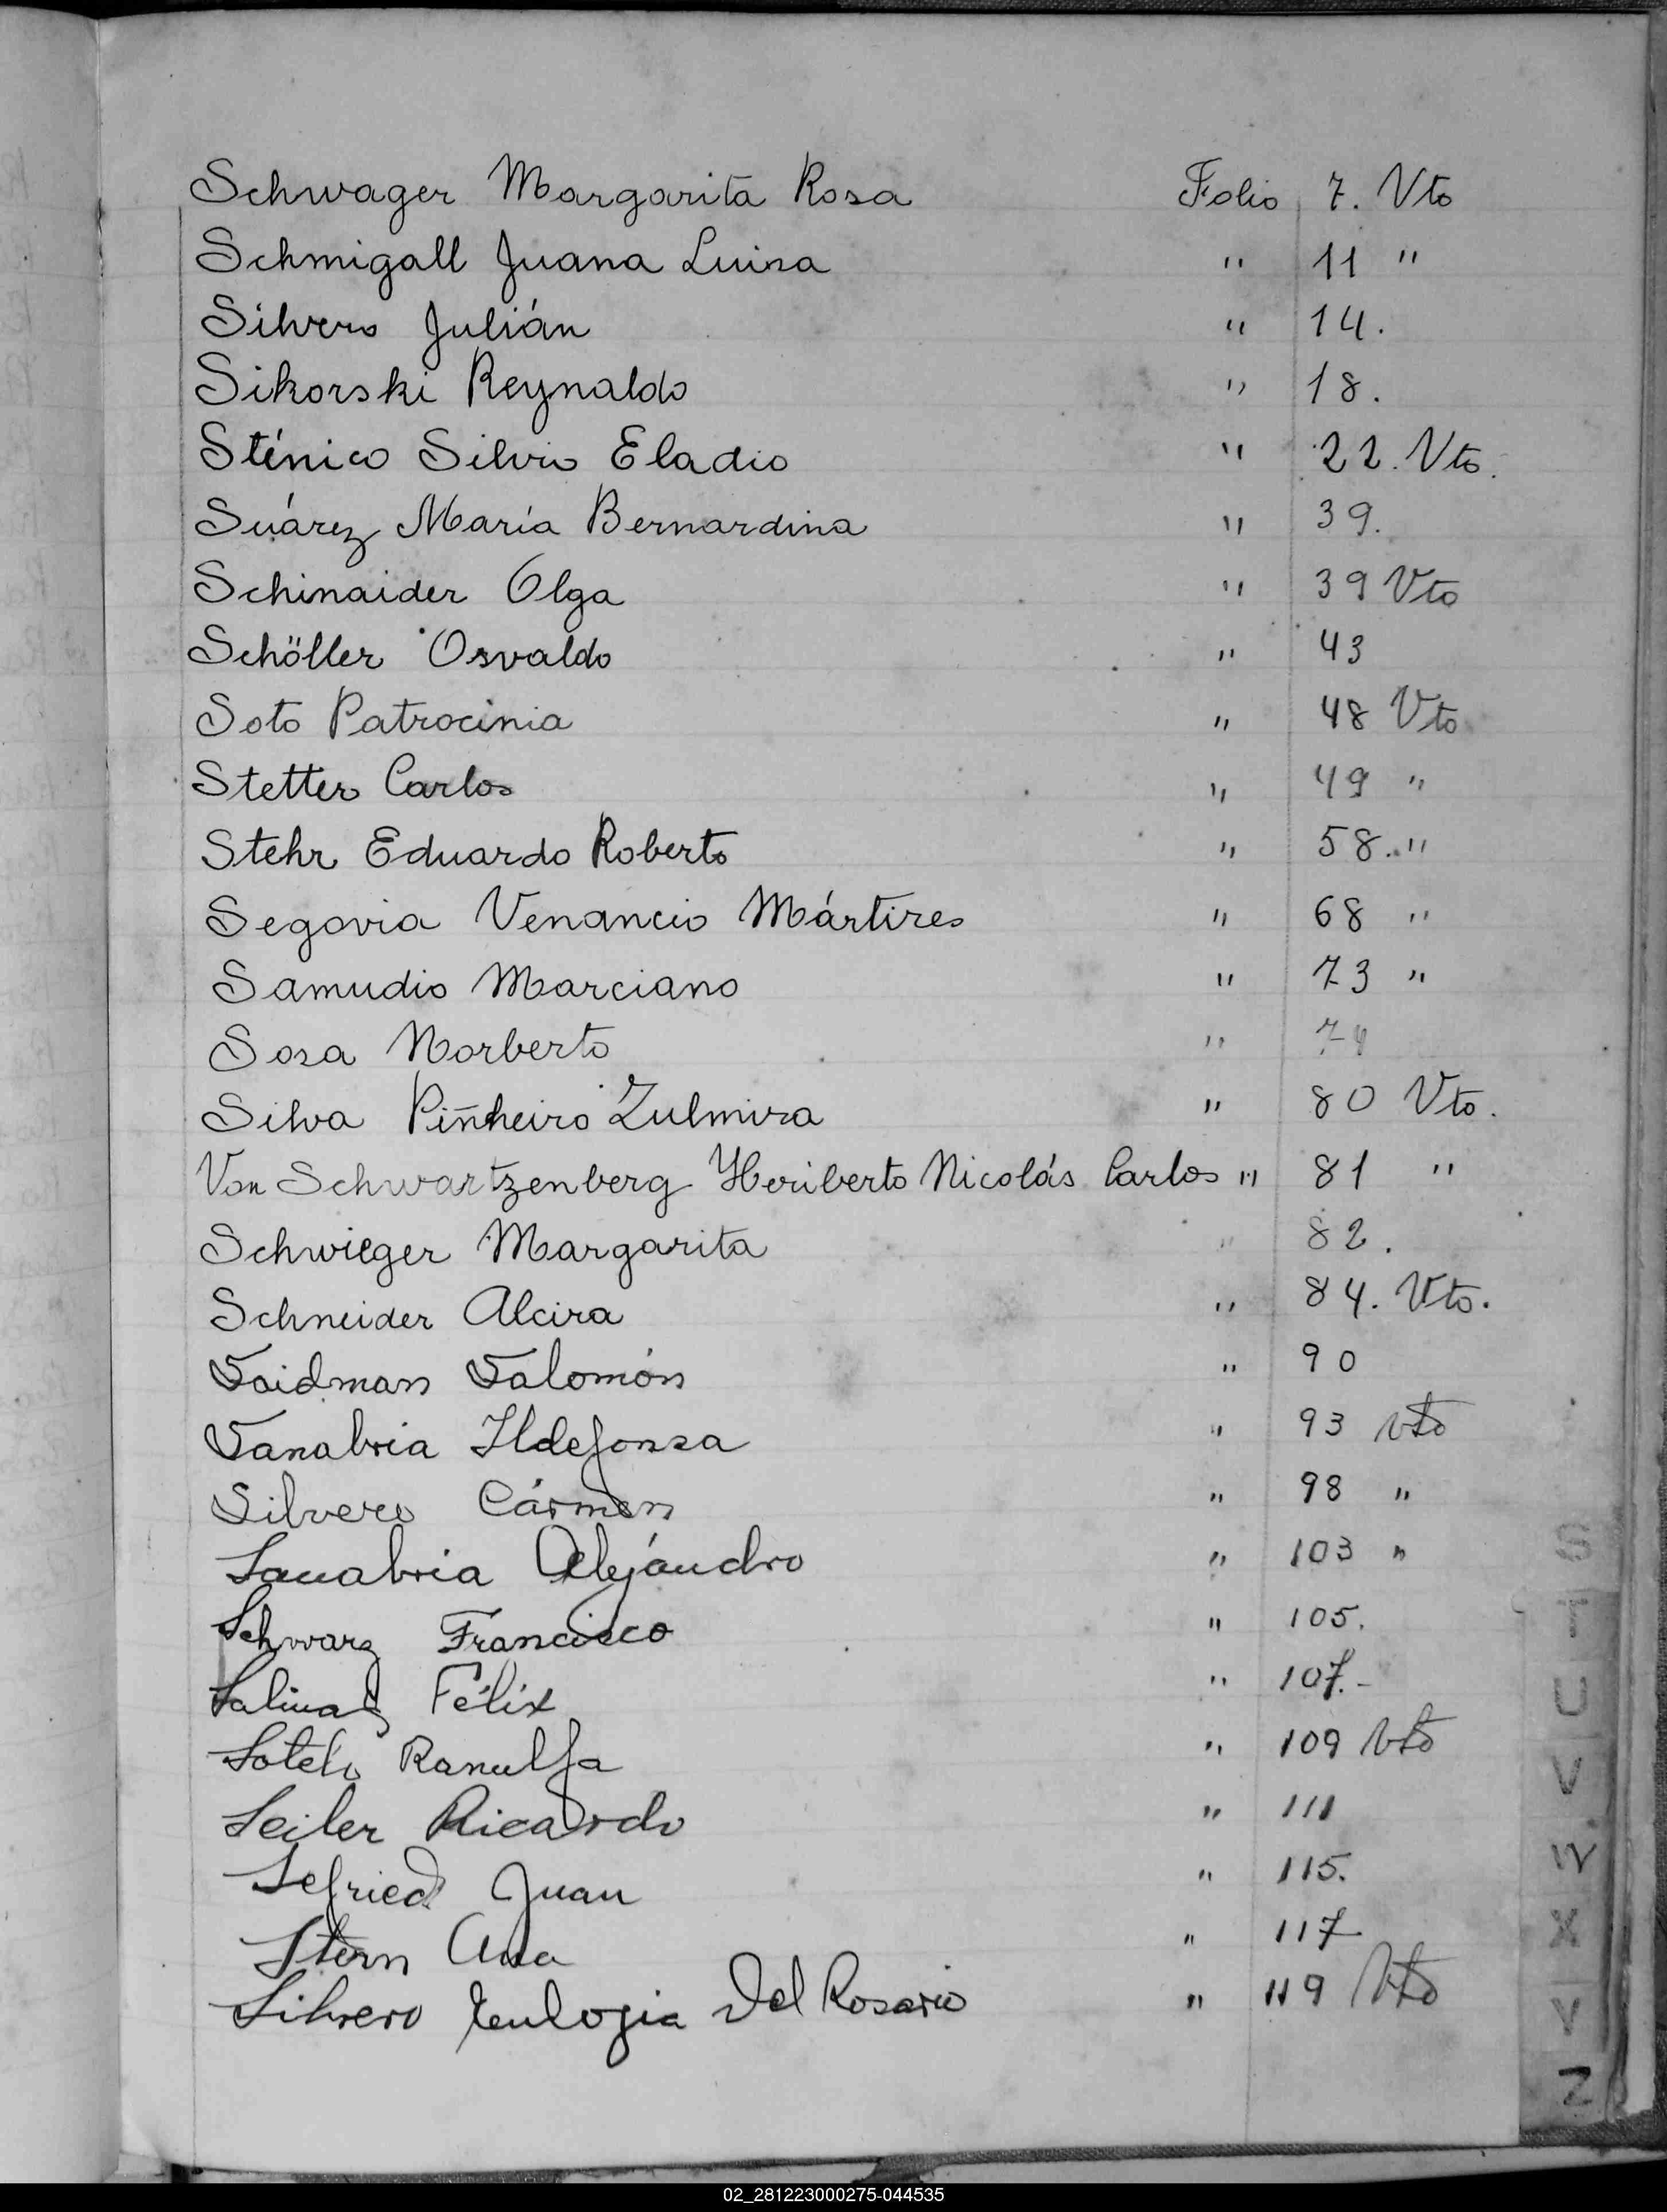 Schwager Margarita Rosa Folio 7. Vto
Schmigall Juana Luisa " 11 "
Silvero Julián " 14.
Sikorski Reynaldo " 18.
Sténico Silvio Eladio " 22. Vto.
Suárez María Bernardina " 39.
Schinaider Olga " 39 Vto
Schöller Osvaldo " 43
Soto Patrocinia " 48 Vto
Stetter Carlos " 49 "
Stehr Eduardo Roberto " 58. "
Segovia Venancio Mártires " 68 "
Samudio Marciano " 73 "
Sosa Norberto "
Silva Piñheiro Zulmira " 80 Vto.
Von Schwartzenberg Heriberto Nicolás Carlos " 81 "
Schwieger Margarita " 82.
Schneider Alcira " 84. Vto.
Saidman Salomón " 90
Sanabria Ildefonsa " 93 vto
Silvero Cármen " 98 "
Sanabria Alejandro " 103 "
Schwarz Francisco " 105.
Salinas Félix " 107.-
Sotelo Ranulfa " 109 Vto
Seiler Ricardo " 111
Sefried Juan " 115.
Stern Ana " 117
Silvero Eulogia Del Rosario " 119 Vto
S
T
U
V
W
X
Y
Z
02_281223000275-044535